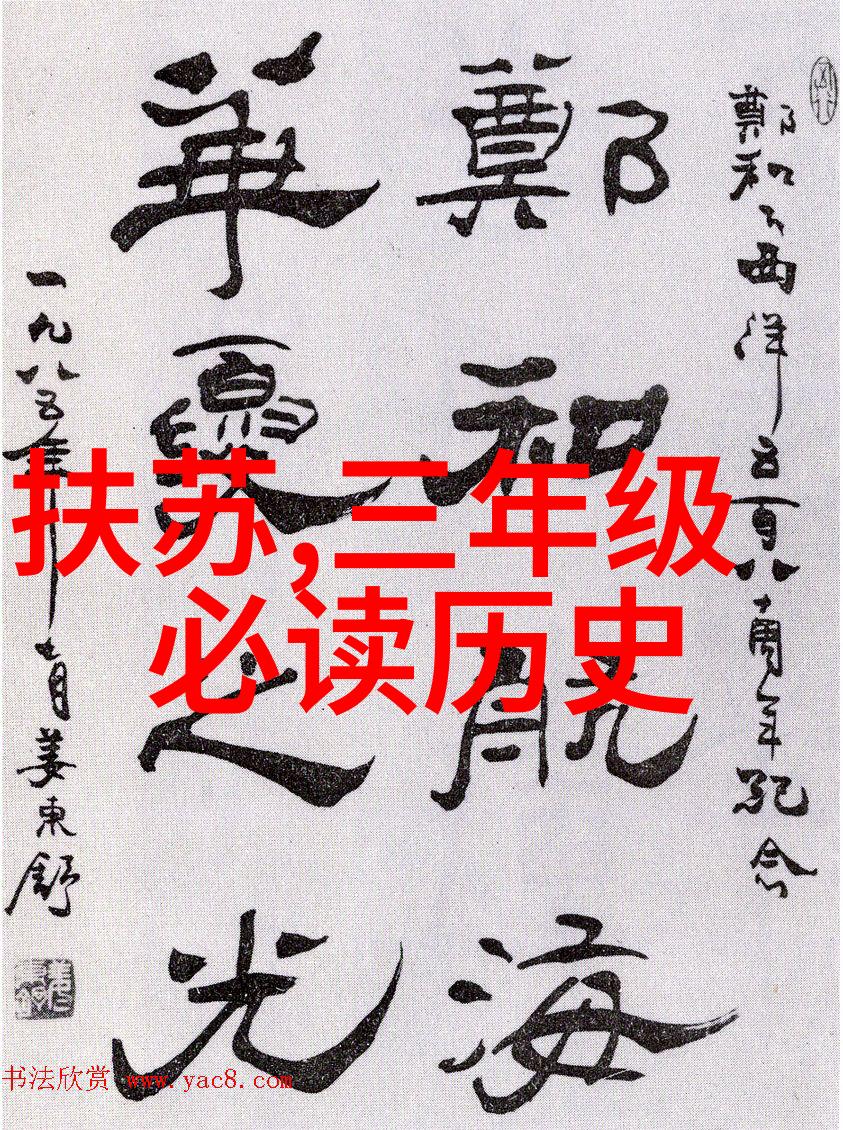 鄭和下西洋五百八十周年纪念
鄭和航海
華夏之光
一九八五年七月姜東舒
扶苏,三年级
必读历史
书法欣赏 www.yac8.com